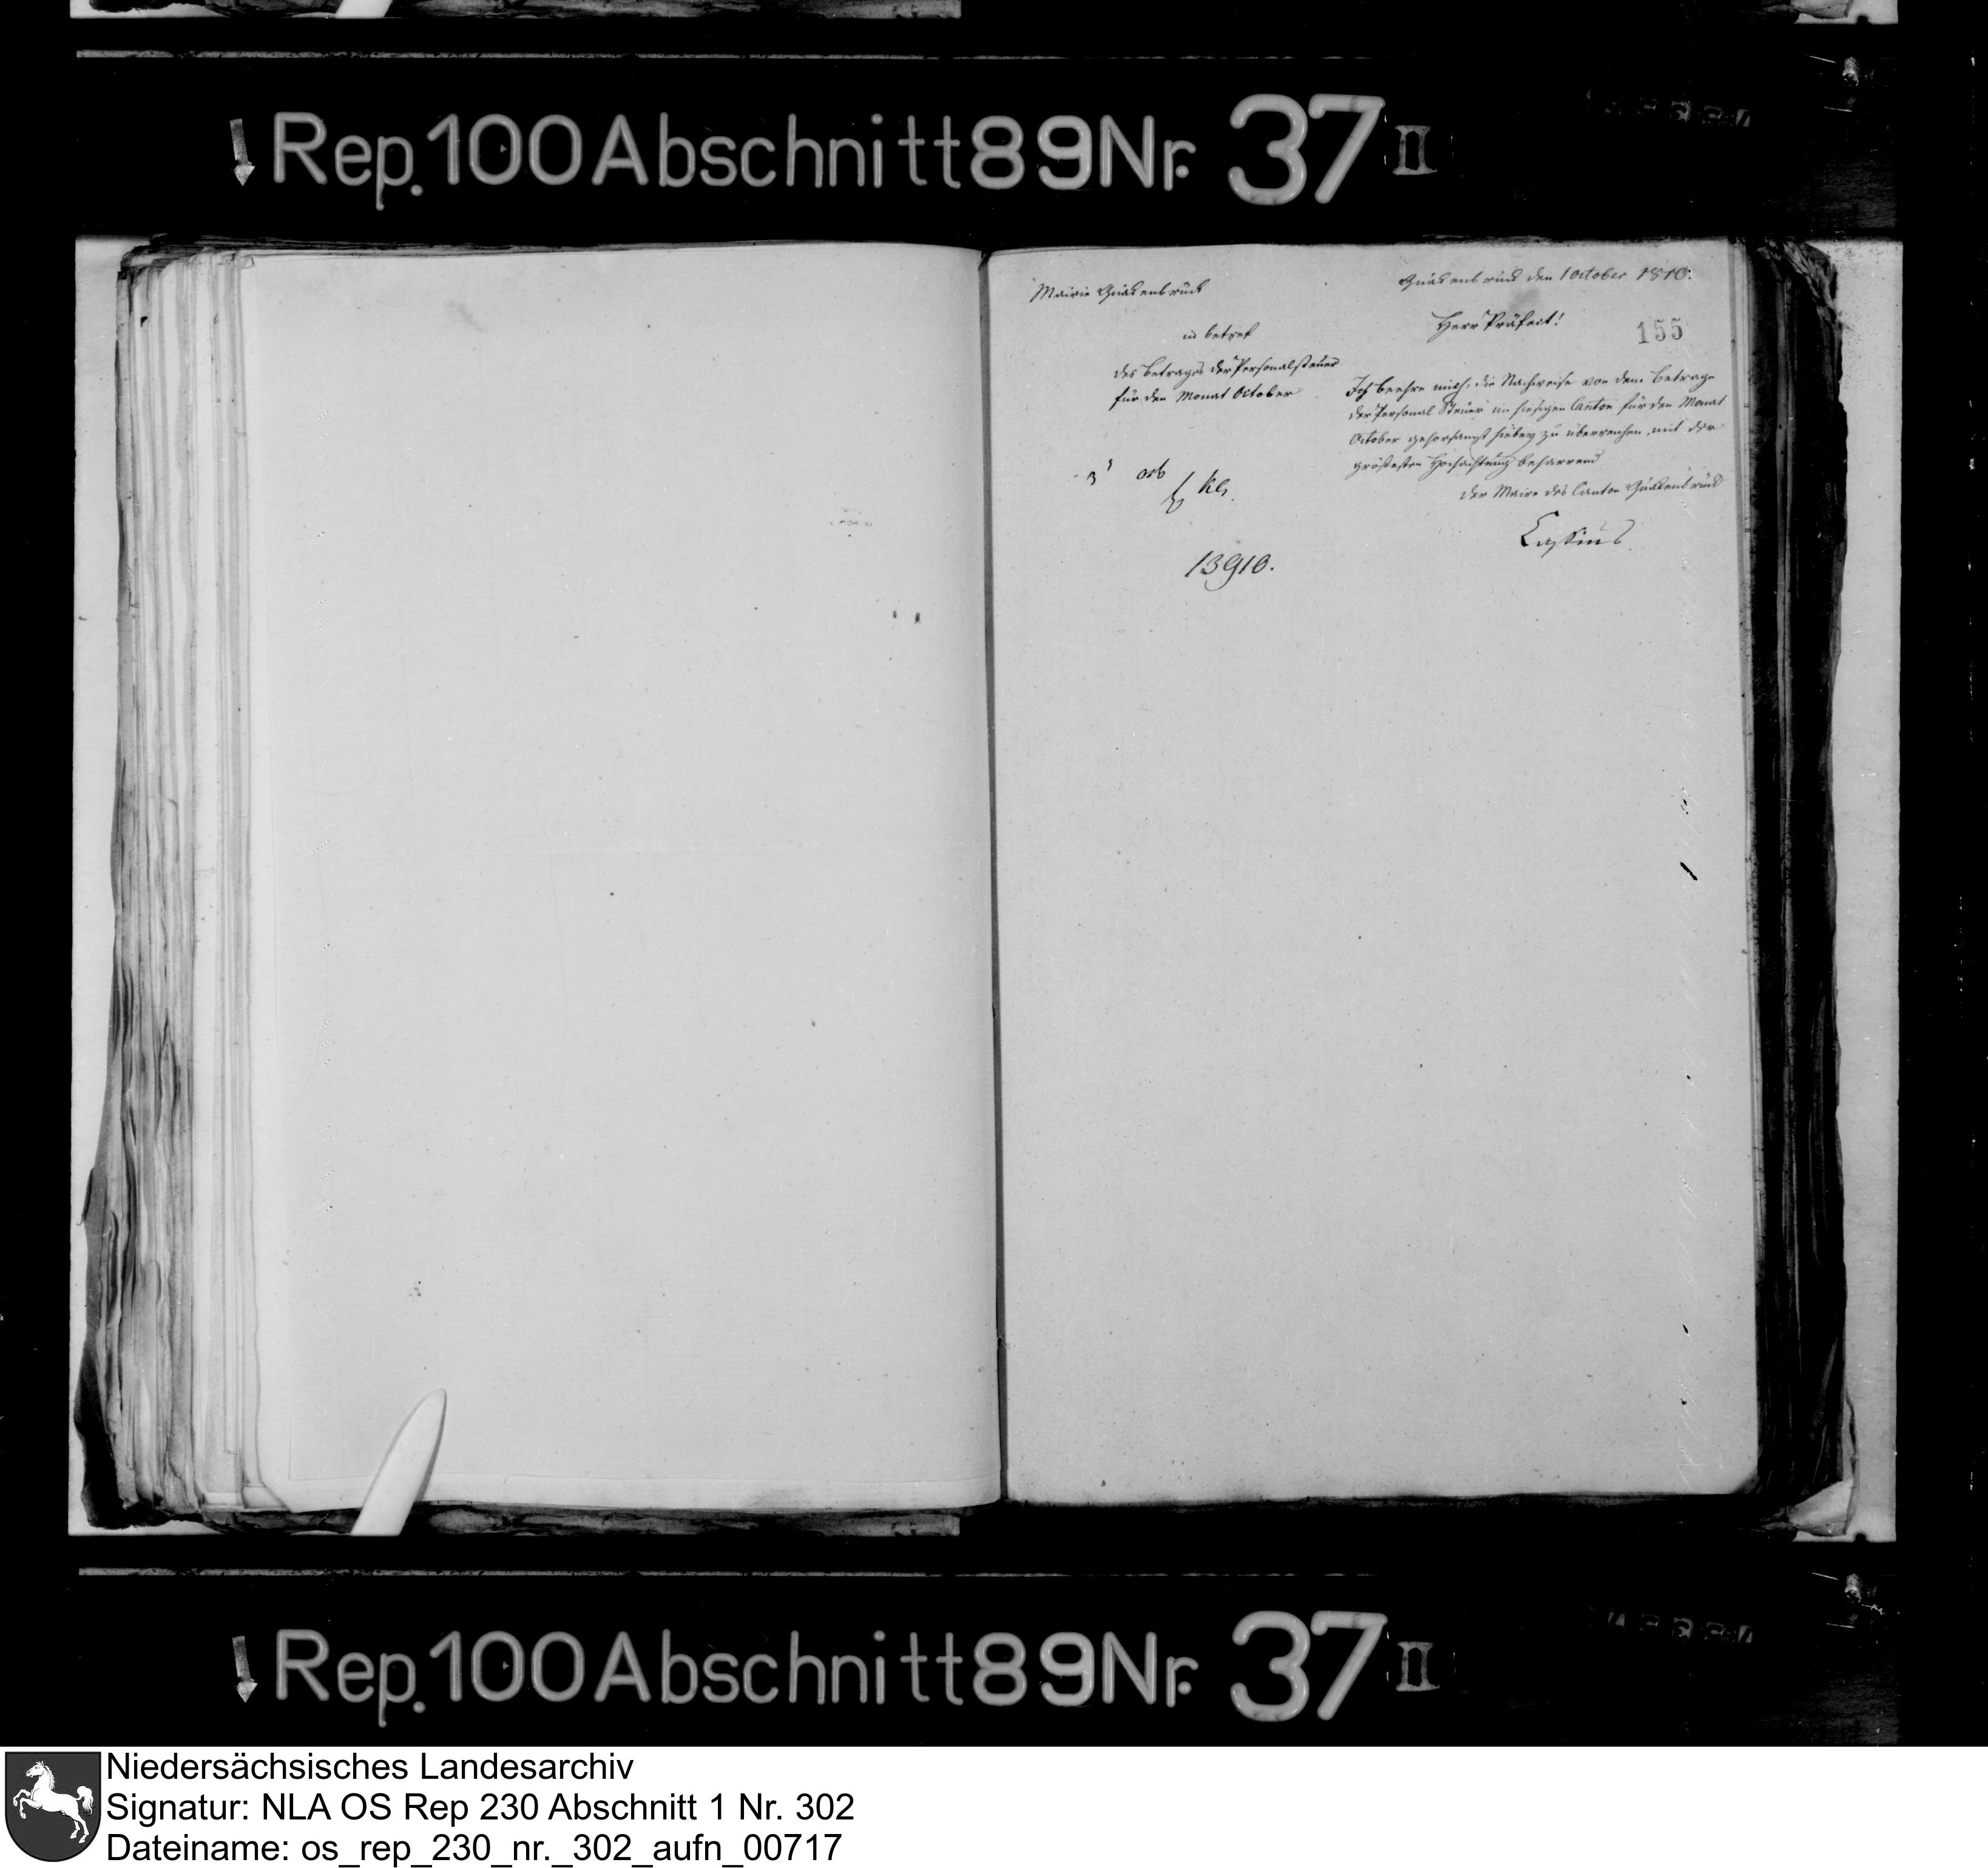 Rep. 100 Abschnitt 89 Nr. 37 II
Mairie Quakenbrück
in betref
des Betrages der Personalsteuer
für den Monat October
13910.
Quakenbrück den 1 October 1810.
Herr Präfect!
155
Ich beehre mich, die Nachweise von dem Betrage
der Personal Steuer im hiesigen Canton für den Monat
October gehorsamst hiebey zu überreichen, mit der
größesten Hochachtung beharrend
der Maire des Canton Quakenbrück
Rep. 100 Abschnitt 89 Nr. 37 II
Niedersächsisches Landesarchiv
Signatur: NLA OS Rep 230 Abschnitt 1 Nr. 302
Dateiname: os_rep_230_nr._302_aufn_00717